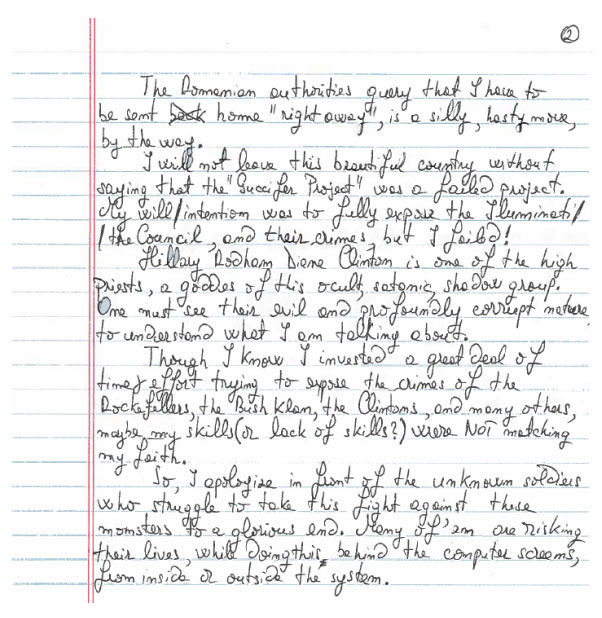 2
The Romanian authorities query that I have to
be sent back home "right away", is a silly, hasty move,
by the way.
I will not leave this beautiful country without
saying that the "Guccifer Project" was a failed project.
My will/intention was to fully expose the Iluminati/
/the Council, and their crimes, but I failed!
Hillary Rodham Diane Clinton is one of the high
priests, a goddes of this occult, satanic, shadow group.
One must see their evil and profoundly corrupt nature
to understand what I am talking about.
Though I know I invested a great deal of
time, effort trying to expose the crimes of the
Rockefellers, the Bush Klan, the Clintons, and many others,
maybe my skills (or lack of skills?) were NOT matching
my faith.
So, I apologize in front of the unknown soldiers
who struggle to take this fight against these
monsters to a glorious end. Many of 'em are risking
their lives, while doing this, behind the computer screens,
from inside or outside the system.